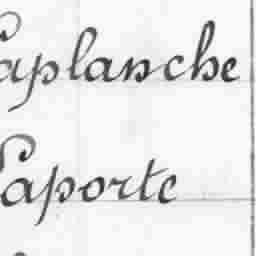 Laplanche
Laporte